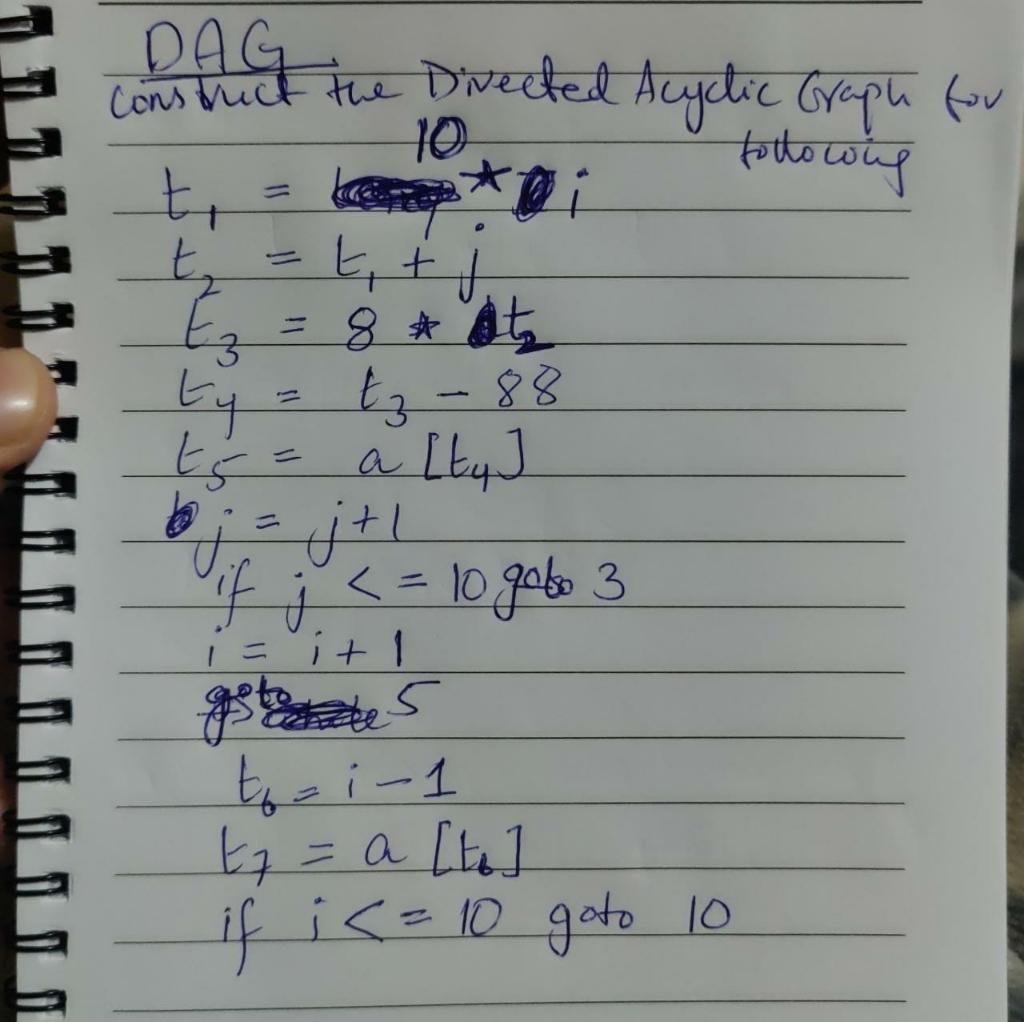 DAG
construct the Directed Acyclic Graph for
following
t₁ = 10 * i
t₂ = t₁ + j
t₃ = 8 * t₂
t₄ = t₃ - 88
t₅ = a [t₄]
j = j+1
if j <= 10 goto 3
i = i + 1
goto 5
t₆ = i - 1
t₇ = a [t₆]
if i <= 10 goto 10